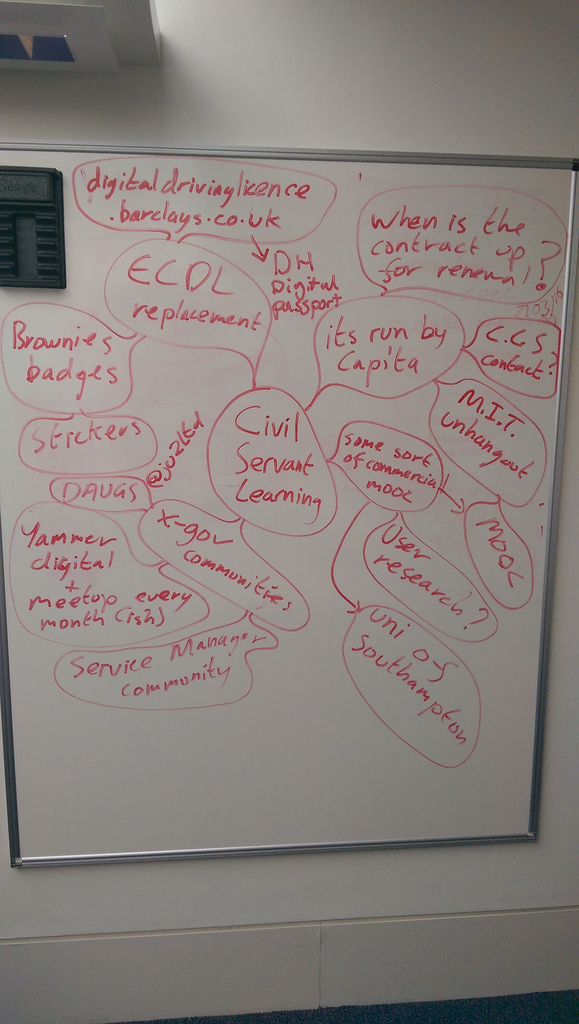 Sharpie
digitaldrivinglicence
.barclays.co.uk
DH
Digital
passport
ECDL
replacement
When is the
contract up
for renewal?
its run by
Capita
C.C.S
contact?
Brownies
badges
Stickers
M.I.T.
unhangout
MOOC
Civil
Servant
Learning
some sort
of commercial
MOOC
User
research?
uni of
Southampton
@jo2ltd
DAUGS
X-gov
communities
Yammer
digital
+
meetup every
month (ish)
Service Manager
community